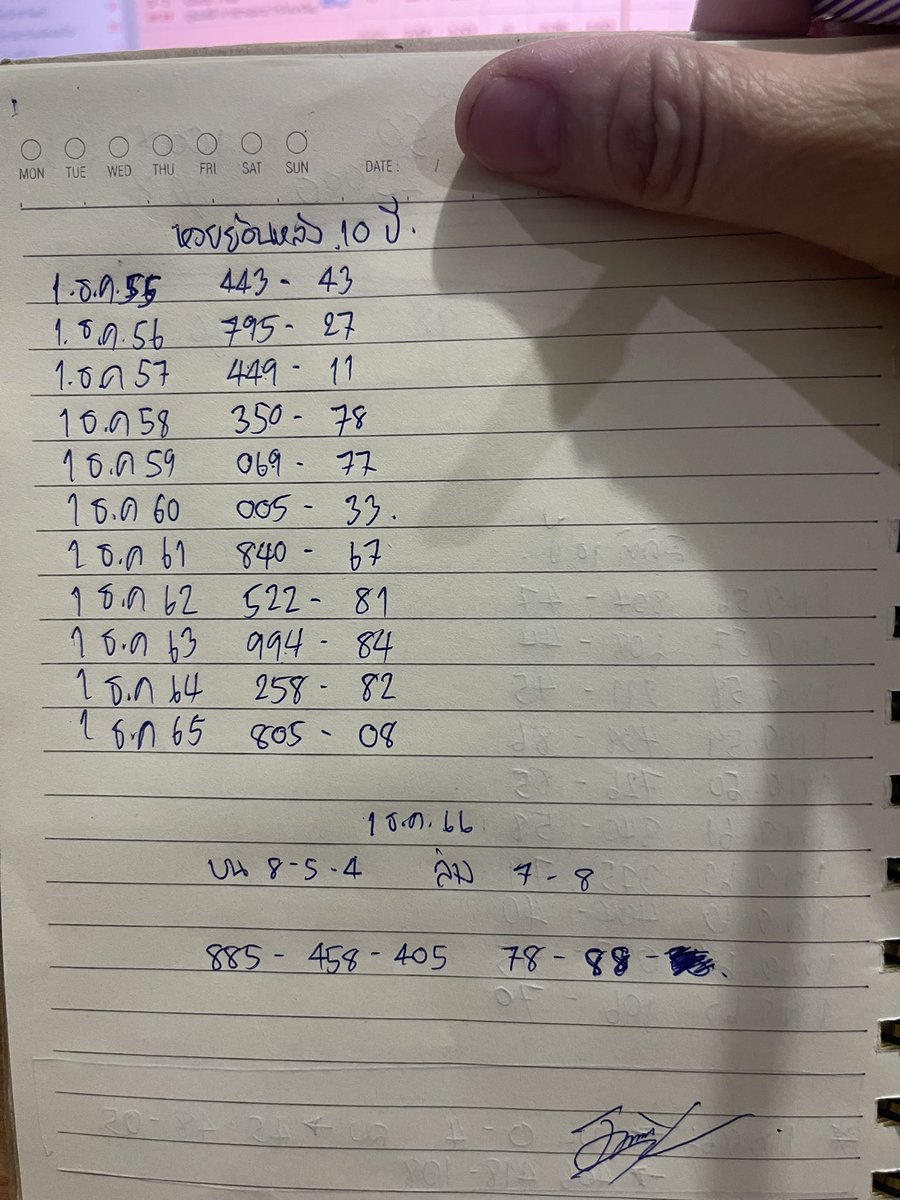 MON TUE WED THU FRI SAT SUN DATE: /
หวยย้อนหลัง 10 ปี.
1.ธ.ค.55 443 - 43
1.ธ.ค.56 795 - 27
1.ธ.ค 57 449 - 11
1 ธ.ค 58 350 - 78
1 ธ.ค 59 069 - 77
1 ธ.ค 60 005 - 33.
1 ธ.ค 61 840 - 67
1 ธ.ค 62 522 - 81
1 ธ.ค 63 994 - 84
1 ธ.ค 64 258 - 82
1 ธ.ค 65 805 - 08
1 ธ.ค. 66
บน 8-5-4 ล่าง 7-8
885 - 458 - 405 78 - 88 -